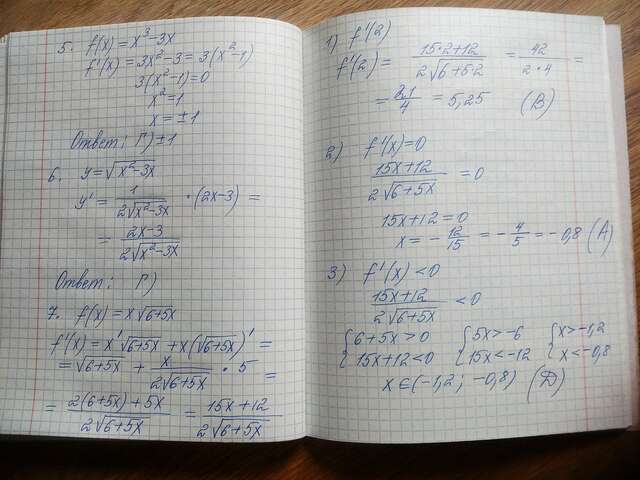 5. f(x) = x³-3x
f'(x) = 3x²-3 = 3(x²-1)
3(x²-1)=0
x²=1
x = ±1
Ответ: Г) ±1
6. y = √(x²-3x)
y' = 1/(2√(x²-3x)) • (2x-3) =
= (2x-3)/(2√(x²-3x))
Ответ: Г)
7. f(x) = x√(6+5x)
f'(x) = x'√(6+5x) + x(√(6+5x))' =
= √(6+5x) + x/(2√(6+5x)) • 5 =
= (2(6+5x)+5x)/(2√(6+5x)) = (15x+12)/(2√(6+5x))
1) f'(2)
f'(2) = (15•2+12)/(2√(6+5•2)) = 42/(2•4) =
= 21/4 = 5,25 (В)
2) f'(x)=0
(15x+12)/(2√(6+5x)) = 0
15x+12=0
x = -12/15 = -4/5 = -0,8 (А)
3) f'(x) < 0
(15x+12)/(2√(6+5x)) < 0
{6+5x > 0 {5x > -6 {x > -1,2
{15x+12 < 0 {15x < -12 {x < -0,8
x ∈ (-1,2; -0,8) (Д)